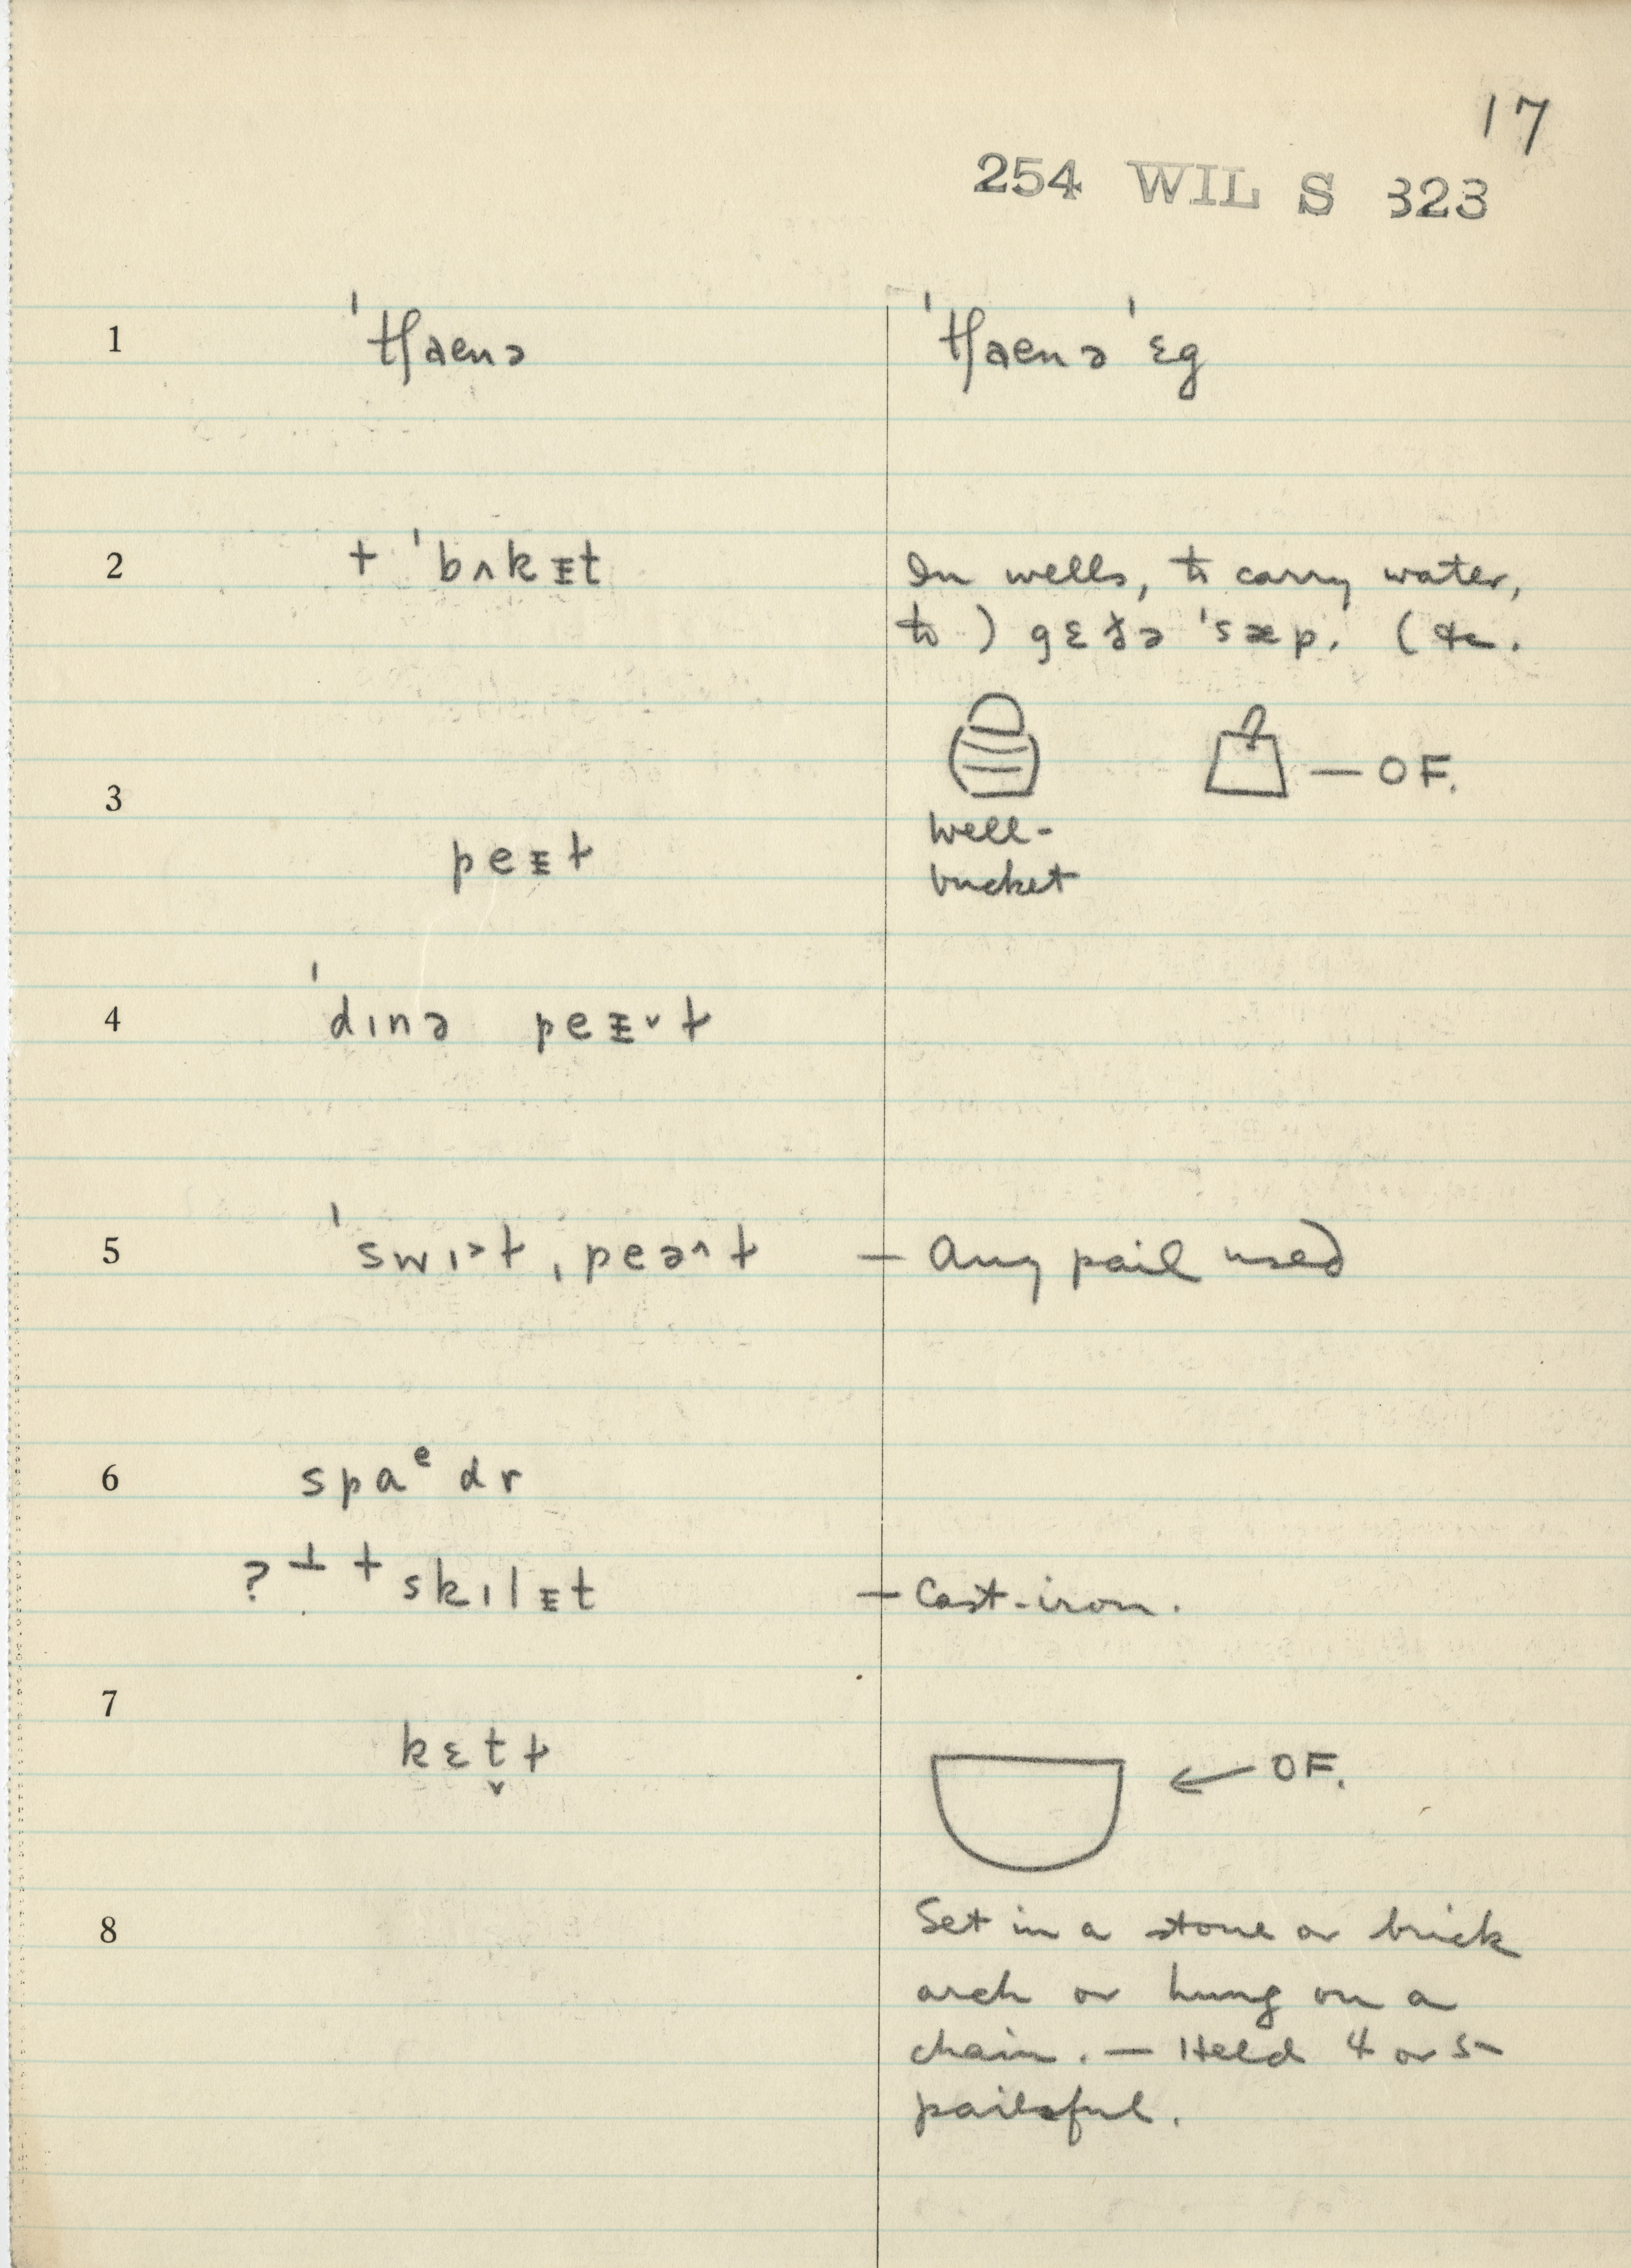 17
254 WIL S 323
1 ˈtʃaenə ˈtʃaenə ˈɛg
2 + ˈbʌkᵻt In wells, to carry water,
to ) gɛðə ˈsæp. ( &c.
— OF.
3 well-
peᵻɫ bucket
4 ˈdɪnə peᵻ˅ɫ
5 ˈswɪ˃ɫ ˌpeə˄ɫ — Any pail used
6 spaᵉdr
? ⊥ + skɪlᵻt — Cast-iron.
7 kɛt̬ɫ ← OF.
8 Set in a stone or brick
arch or hung on a
chain. — Held 4 or 5
pailsful.